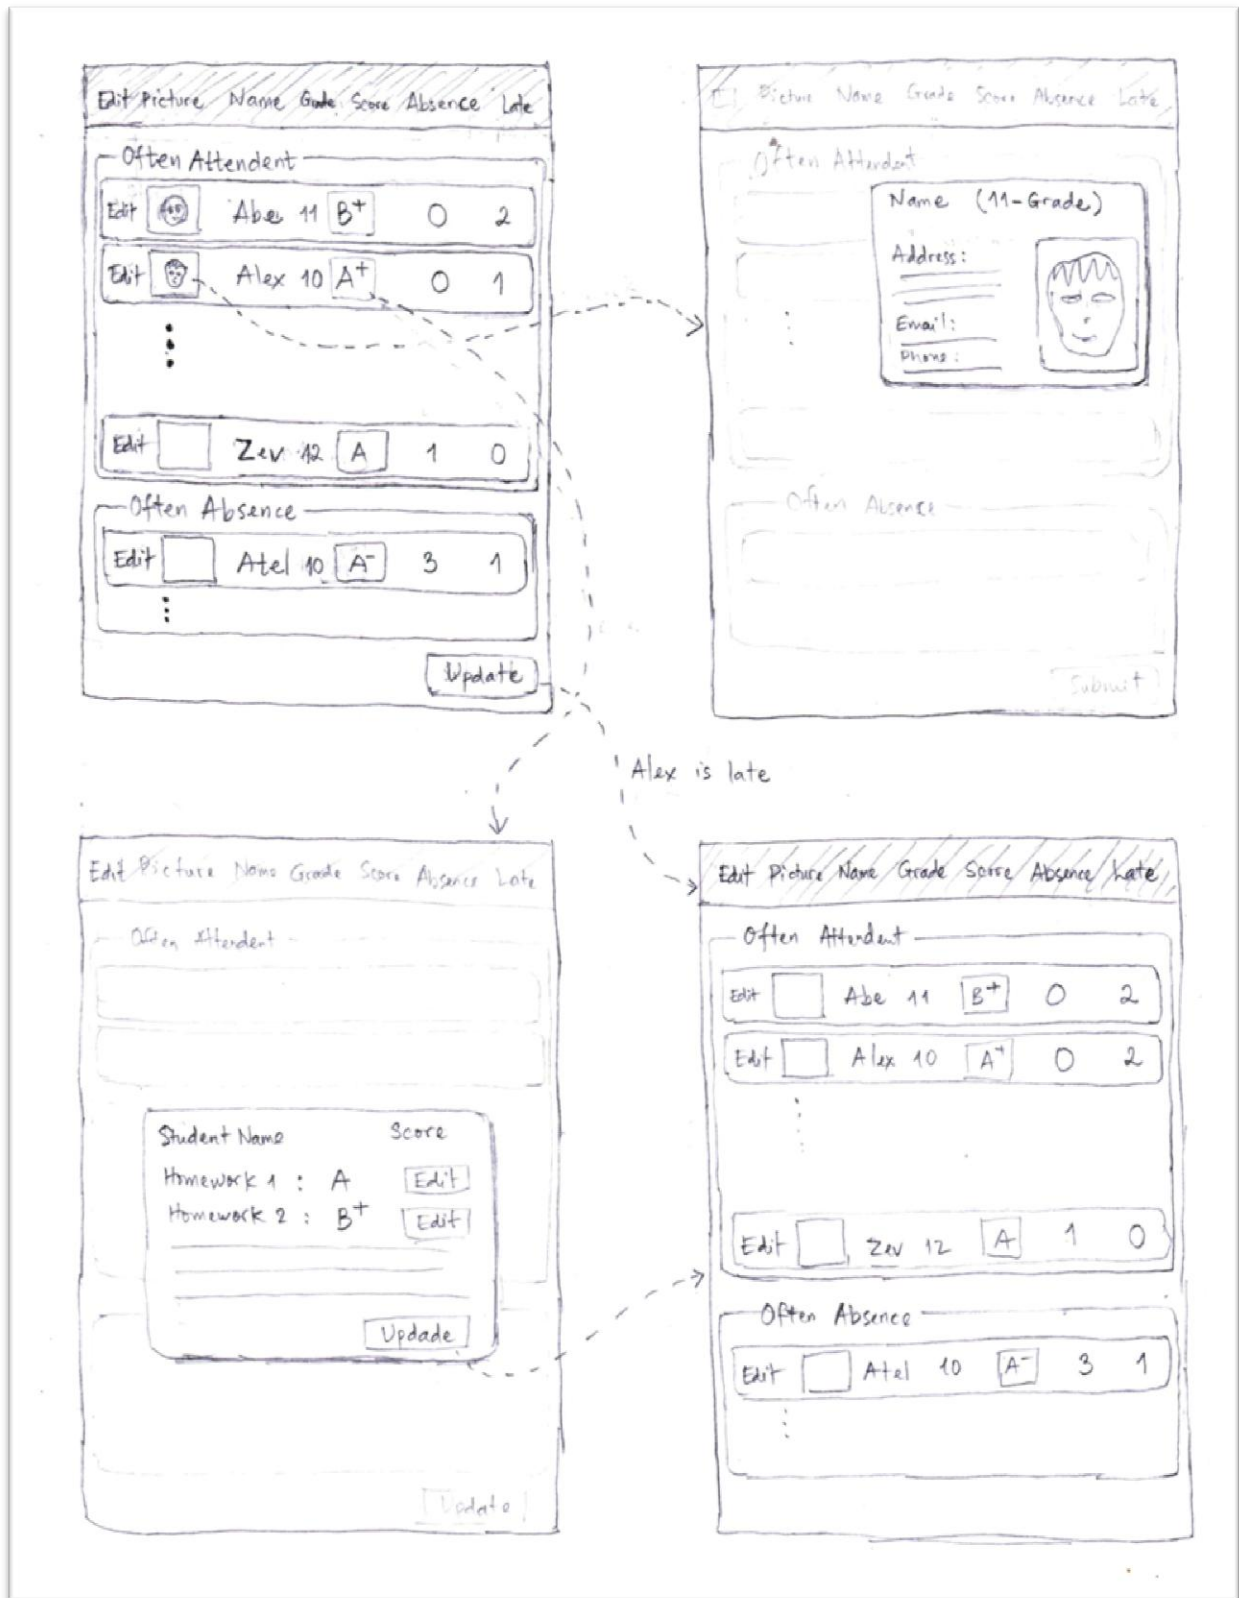 Edit Picture Name Grade Score Absence Late
Often Attendent
Edit Abe 11 B+ 0 2
Edit Alex 10 A+ 0 1
Edit Zev 12 A 1 0
Often Absence
Edit Atel 10 A- 3 1
Update
Picture Name Grade Score Absence Late
Often Attendent
Name (11-Grade)
Address:
Email:
Phone:
Often Absence
Submit
Alex is late
Edit Picture Name Grade Score Absence Late
Often Attendent
Student Name Score
Homework 1 : A Edit
Homework 2 : B+ Edit
Updade
Update
Edit Picture Name Grade Score Absence Late
Often Attendent
Edit Abe 11 B+ 0 2
Edit Alex 10 A+ 0 2
Edit Zev 12 A 1 0
Often Absence
Edit Atel 10 A- 3 1